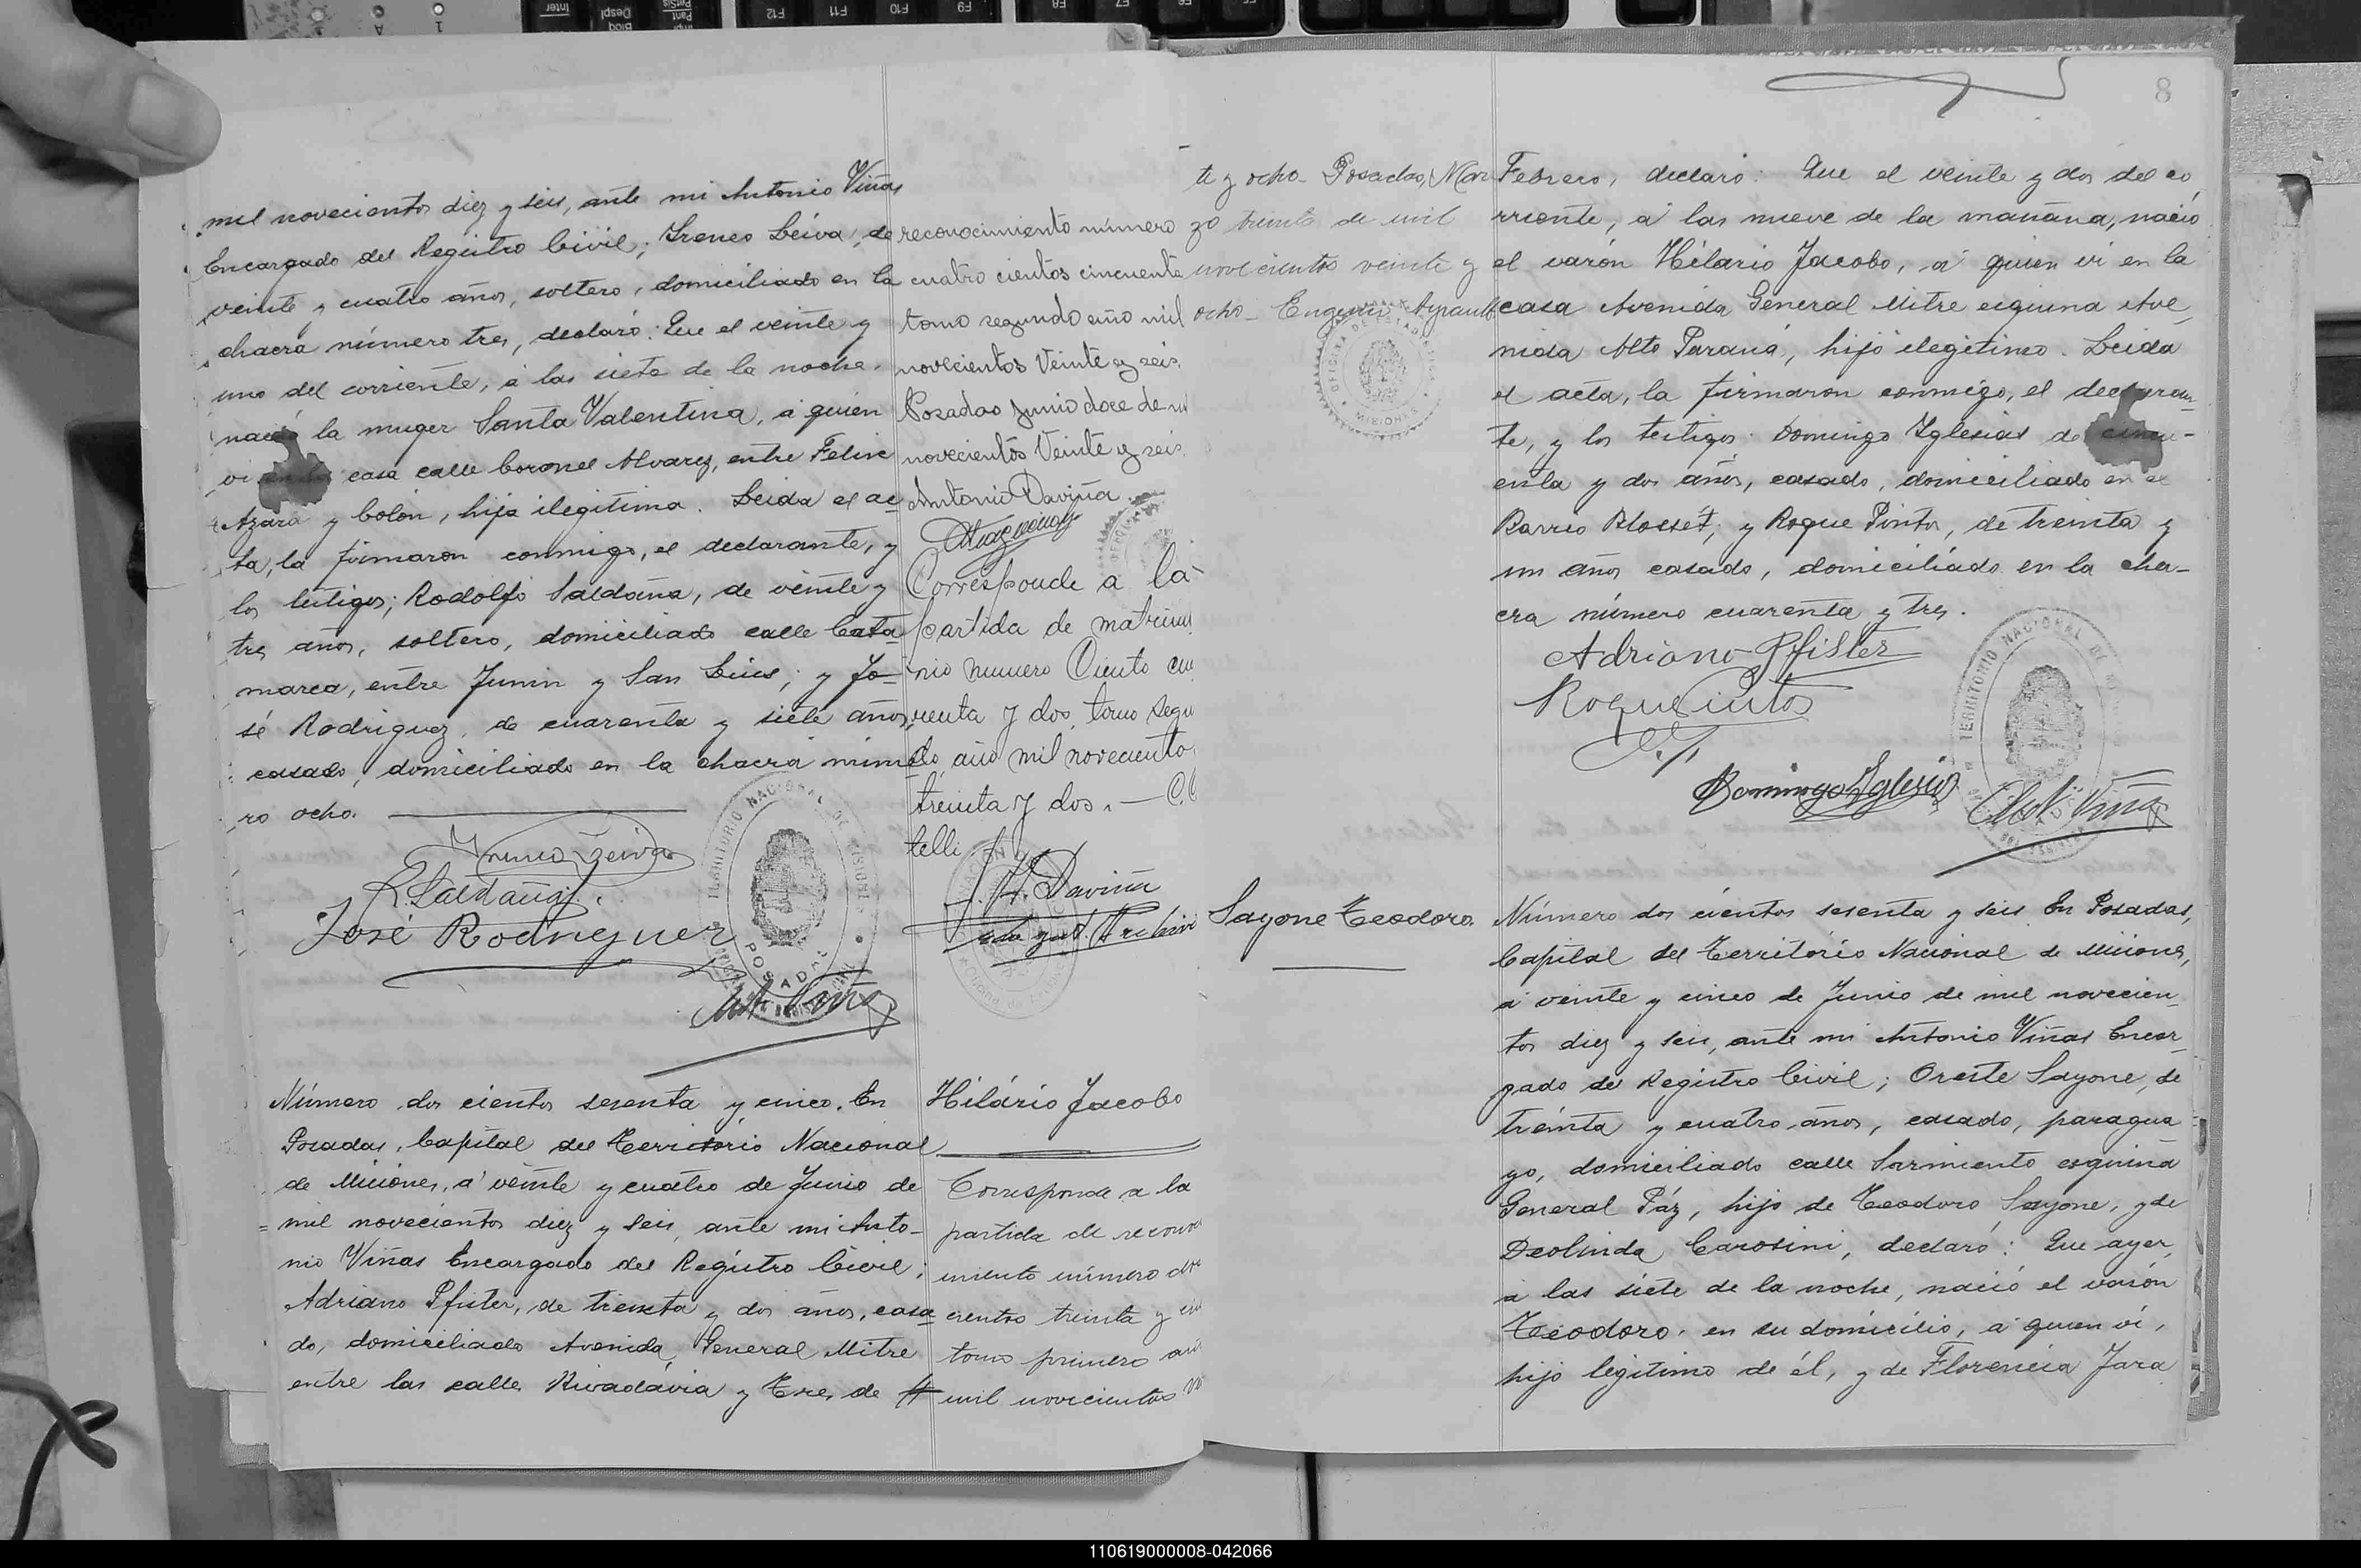 mil novecientos diez y seis, ante mi Antonio Viñas
Encargado del Registro Civil; Ireneo Leiva, de
veinte y cuatro años, soltero, domiciliado en la
chacra número tres, declaró: Que el veinte y
uno del corriente, á las siete de la noche,
nació la muger Santa Valentina, á quien
vi en la casa calle Coronel Alvarez, entre Felix
Azara y Colón, hija ilegitima. Leida el ac
ta, la firmaron conmigo, el declarante, y
los testigos; Rodolfo Saldaña, de veinte y
tres años, soltero, domiciliado calle Cata
marca, entre Junin y San Luis; y Jo-
sé Rodriguez, de cuarenta y siete años,
casado, domiciliado en la chacra núme
ro ocho.
Ireneo Leiva
R. Saldaña
José Rodriguez
TERRITORIO NACIONAL DE MISIONES
POSADAS
Ant. Viñas
reconocimiento número
cuatro cientos cincuenta
tomo segundo año mil
novecientos Veinte y seis.
Posadas Junio doce de mil
novecientos Veinte y seis.
Antonio Daviña
Corresponde a la
partida de matrimo
nio numero Ciento cua
renta y dos, tomo segun
do, año mil novecientos
treinta y dos. —
telli
H. Daviña
Número dos cientos sesenta y cinco. En
Posadas, Capital del Territorio Nacional
de Misiones, á veinte y cuatro de Junio de
mil novecientos diez y seis, ante mi Anto-
nio Viñas Encargado del Registro Civil;
Adriano Pfister, de treinta y dos años, casa
do, domiciliado Avenida General Mitre
entre las calles Rivadávia y Tres de #
Hilário Jacobo
Corresponde a la
partida de recono
miento número dos
cientos treinta y
tomo primero año
mil novecientos
te y ocho. Posadas, Mar
zo treinta de mil
novecientos veinte y
ocho-
OFICINA DE ESTADISTICA
MISIONES
8
Febrero, declaró: Que el veinte y dos del co
rriente, á las nueve de la mañana, nació
el varón Hilario Jacobo, á quien vi en la
casa Avenida General Mitre esquina Ave
nida Alto Paraná, hijo ilegitimo. Leida
el acta, la firmaron conmigo, el declaran
te, y los testigos: Domingo Yglesias de cincu-
enta y dos años, casado, domiciliado en el
Barrio Blosset; y Roque Pintos, de treinta y
un años casado, domiciliado en la cha-
cra número cuarenta y tres.
Adriano Pfister
Roque Pintos
Domingo Yglesias
TERRITORIO NACIONAL DE MISIONES
Ant. Viñas
Sayone Teodoro.
Número dos cientos sesenta y seis En Posadas,
Capital del Territorio Nacional de Misiones,
á veinte y cinco de Junio de mil novecien
tos diez y seis, ante mi Antonio Viñas Encar
gado del Registro Civil; Oreste Sayone, de
treinta y cuatro años, casado, paragua
yo, domiciliado calle Sarmiento esquina
General Páz, hijo de Teodoro Sayone, y de
Deolinda Carosini, declaró: Que ayer,
á las siete de la noche, nació el varón
Teodoro, en su domicilio, á quien vi,
hijo legitimo de él, y de Florencia Jara
110619000008-042066